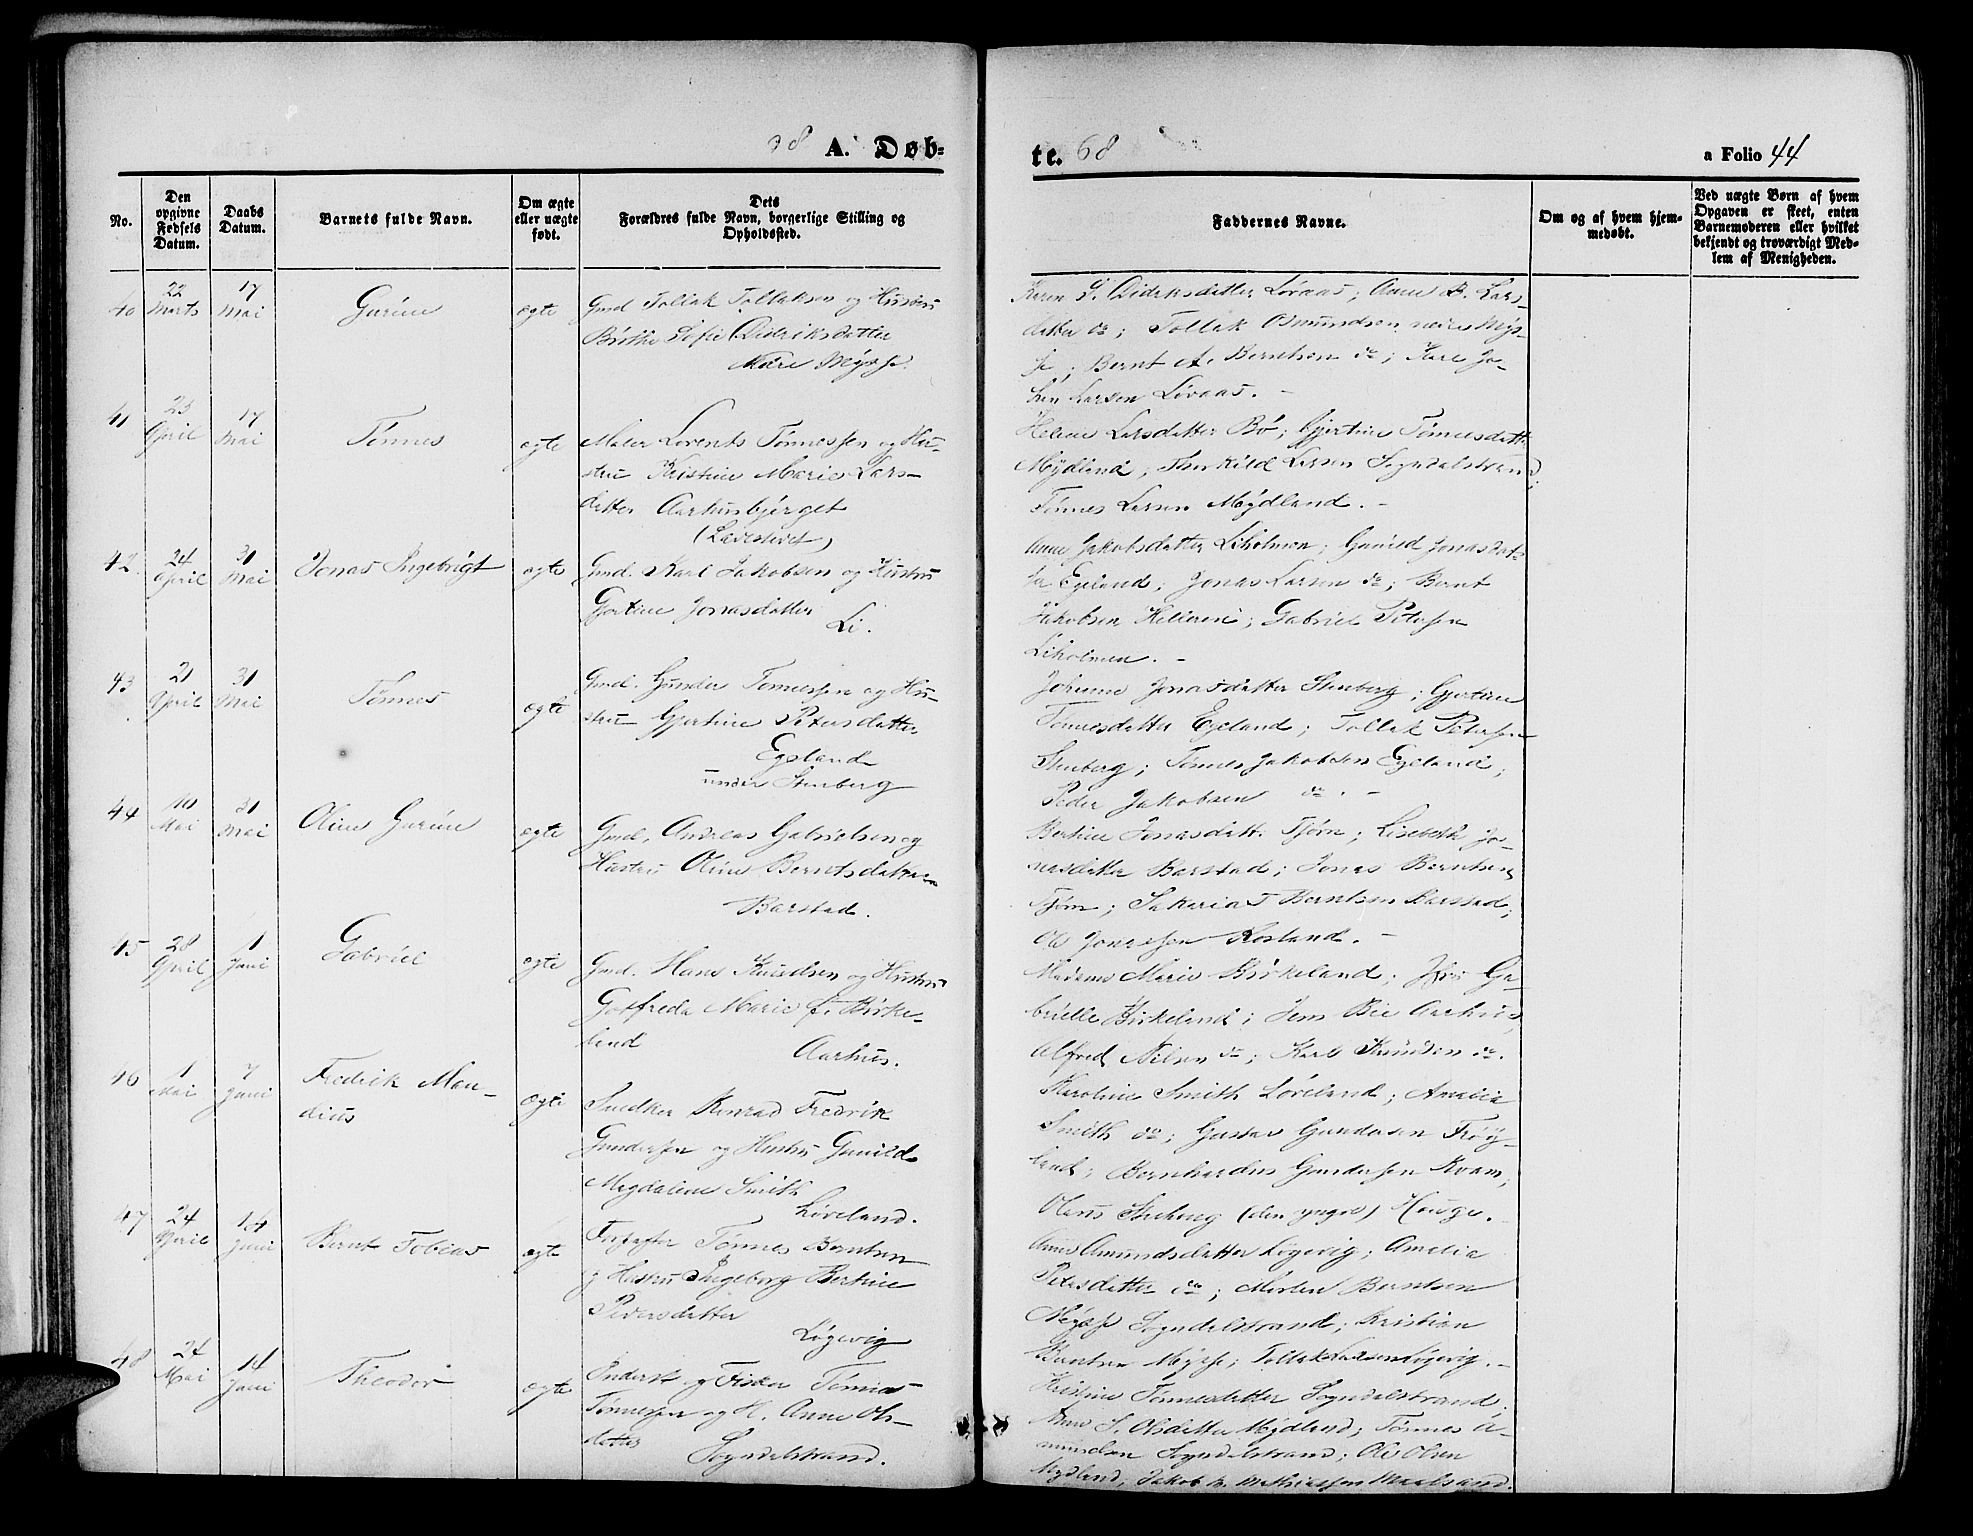 A. Døb=
te. 68
a Folio 44
No.
Den opgivne Fødsels Datum.
Daabs Datum.
Barnets fulde Navn.
Om ægte eller uægte født.
Dets Forældres fulde Navn, borgerlige Stilling og Opholdssted.
Faddernes Navne.
Om og af hvem hjemmedøbt.
Ved uægte Børn af hvem Opgaven er skeet, enten Barnemoderen eller hvilket bekjendt og troværdigt Medlem af Menigheden.
40
22 Marts
17 Mai
Gurine
ægte
Gmd Tollak Tollaksen og Hustru
Birthe Sofie Didriksdatter
Nære Mysse.
Karen S. Didriksdatter Lovaas; Anne B. Lars-
datter do; Tollak Osmundsen nære Mys-
se; Bernt A. Berntsen do; Karl Jo-
han Larsen Lovaas. -
41
23 April
17 Mai
Tønnes
ægte
Maler Lorents Tønnessen og Hu-
stru Kristine Marie Lars-
datter Aarhusbjerget
Helene Larsdatter Bø; Gjertine Tønnesdatter
Mydland; Thorkild Larsen Sogndalstrand;
Tønnes Larsen Mydland. -
42
24 April
31 Mai
Jonas Ingebrigt
ægte
Gmd. Karl Jakobsen og Hustru
Gjertine Jonasdatter
Li.
Anne Jakobsdatter Liholmen; Gunild Jonasdat-
ter Egeland; Jonas Larsen do; Bernt
Jakobsen Helleren; Gabriel Petersen
Liholmen. -
43
21 April
31 Mai
Tønnes
ægte
Gmd. Gunder Tønnessen og Hu-
stru Gjertine Petersdatter
Egeland
under Stenberg
Johanne Jonasdatter Stenberg; Gjertine
Tønnesdatter Egeland; Tollak Petersen
Stenberg; Tønnes Jakobsen Egeland;
Peder Jakobsen do. -
44
10 Mai
31 Mai
Oline Gurine
ægte
Gmd. Andreas Gabrielsen og
Hustru Oline Berntsdatter
Barstad.
Bertine Jonasdatt. Tjørn; Lisebeth Jo-
nasdatter Barstad; Jonas Berntsen
Tjørn; Sakarias Berntsen Barstad;
Ole Jonassen Rosland. -
45
28 April
1 Juni
Gabriel
ægte
Gmd. Hans Knudsen og Hustru
Gotfreda Marie f. Birke-
land Aarhus.
Madame Marie Birkeland; Jfr. Ga-
brielle Birkeland; Jens Bie Aarhus;
Alfred Nilsen do; Karl Knudsen do.
46
1 Mai
7 Juni
Fredrik Man-
dius
ægte
Snedker Konrad Fredrik
Gundersen og Hustru Gunild
Magdalene Smith
Løveland.
Karoline Smith Løveland; Amalia
Smith do; Gustav Gundersen Frøy-
land; Bernhardus Gundersen Kvam;
Olaus Stuhaug (den yngre) Hauge.
47
24 April
14 Juni
Bernt Tobias
ægte
Forpagter Tønnes Berntsen
og Hustru Ingeborg Bertine
Pedersdatter
Løgevig
Anne Amundsdatter Løgevig; Amalia
Petersdatter do; Morten Berntsen
Mysse Sogndalstrand; Kristian
Berntsen Mysse; Tollak Larsen Løgevig. -
48
24 Mai
14 Juni
Theodor
ægte
Inderst og Fisker Tønnes
Tønnessen og H. Anne Ols-
datter
Sogndalstrand.
Kristine Tønnesdatter Sogndalstrand;
Anne S. Olsdatter Mydland; Tønnes A-
mundsen Sogndalstrand; Ole Olsen
Mydland; Jakob M. Mathiassen Maalsand.